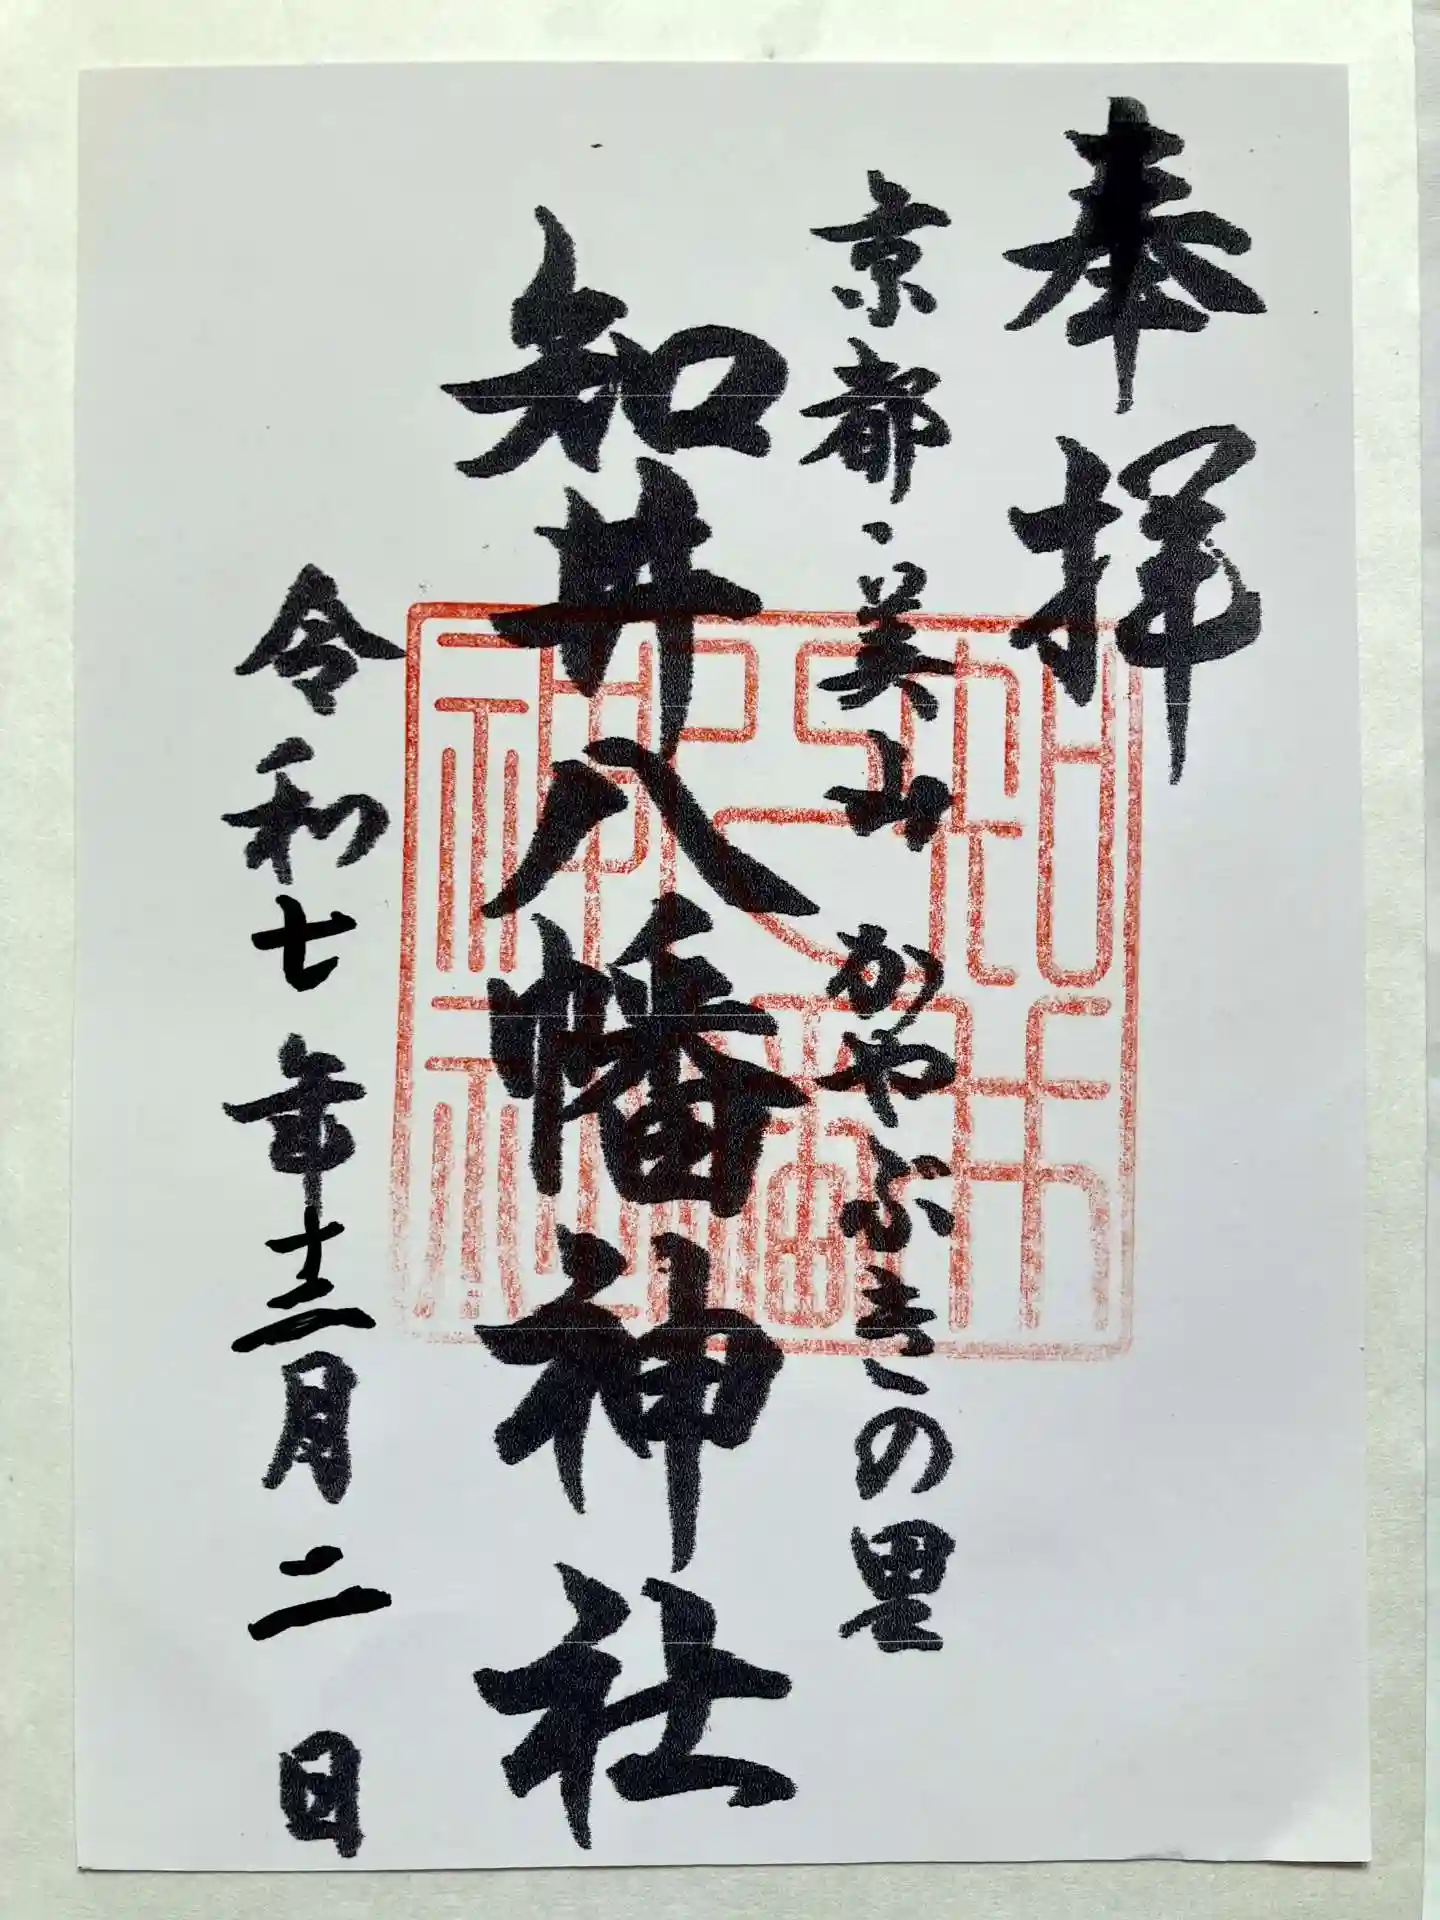 奉拝
京都・美山かやぶきの里
知井八幡神社
令和七年十二月二日
知井八幡神社